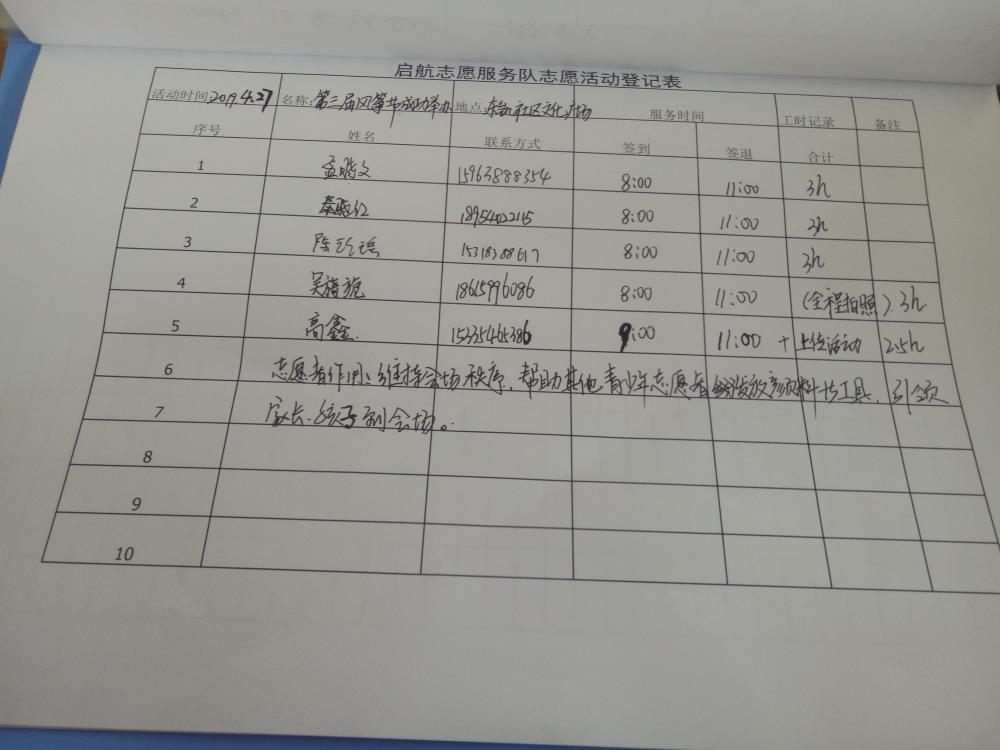 启航志愿服务队志愿活动登记表
活动时间:2019.4.27 名称:第三届风筝节成功举办 地点:东航社区文化广场 服务时间 工时记录 备注
序号 姓名 联系方式 签到 签退 合计
1 孟晓文 15963888354 8:00 11:00 3h
2 秦晓红 18954022115 8:00 11:00 3h
3 陈玲瑶 15318388617 8:00 11:00 3h
4 吴旖旎 18615996086 8:00 11:00 (全程拍照). 3h
5 高鑫. 15235465386 9:00 11:00 + 上传活动 2.5h
6 志愿者作用:维持会场秩序,帮助其他青少年志愿者发放 工具,引领
7 家长、孩子到会场。
8
9
10